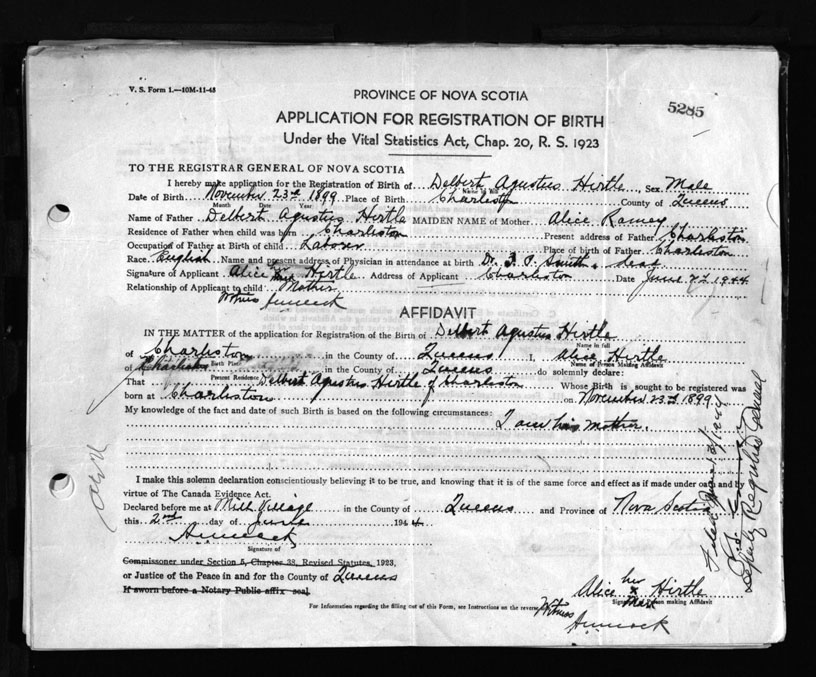 V. S. Form 1.—10M-11-43
PROVINCE OF NOVA SCOTIA
5285
APPLICATION FOR REGISTRATION OF BIRTH
Under the Vital Statistics Act, Chap. 20, R. S. 1923
TO THE REGISTRAR GENERAL OF NOVA SCOTIA
I hereby make application for the Registration of Birth of Delbert Agustus Hirtle Sex Male
Date of Birth November 23rd 1899 Place of Birth Charleston County of Queens
Month Date Year
Name of Father Delbert Agustus Hirtle MAIDEN NAME of Mother Alice Ramey
Residence of Father when child was born Charleston Present address of Father Charleston
Occupation of Father at Birth of child Laborer Place of birth of Father Charleston
Race English Name and present address of Physician in attendance at birth Dr. Smith. dead
Signature of Applicant Alice her mark Hirtle Address of Applicant Charleston Date June 2nd 1944
Relationship of Applicant to child Mother
Witness
AFFIDAVIT
IN THE MATTER of the application for Registration of the Birth of Delbert Agustus Hirtle
Name in full
of Charleston in the County of Queens I, Alice Hirtle
Birth Place Name of Person Making Affidavit
of Charleston in the County of Queens do solemnly declare:
Present Residence
That Delbert Agustus Hirtle of Charleston Whose Birth is sought to be registered was
born at Charleston on November 23rd 1899
My knowledge of the fact and date of such Birth is based on the following circumstances:
I am his mother.
I make this solemn declaration conscientiously believing it to be true, and knowing that it is of the same force and effect as if made under oath and by
virtue of The Canada Evidence Act.
Declared before me at Mill Village in the County of Queens and Province of Nova Scotia
this 2nd day of June 1944
Signature of
Commissioner under Section 5, Chapter 38, Revised Statutes, 1923,
or Justice of the Peace in and for the County of Queens
If sworn before a Notary Public affix seal.
Alice her x mark Hirtle
Signature of Person making Affidavit
For Information regarding the filling out of this Form, see Instructions on the reverse
Witness
Deputy Registrar General